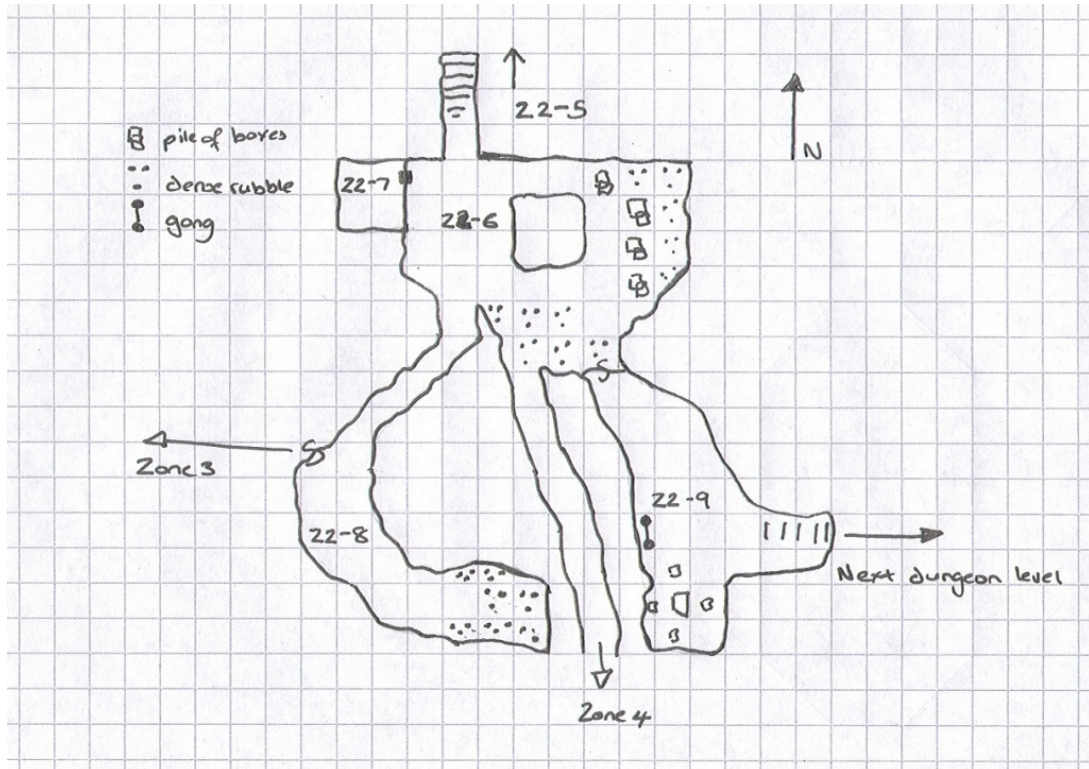 22-5
N
pile of boxes
dense rubble
gong
22-7
22-6
S
S
Zone 3
22-9
22-8
Next dungeon level
Zone 4